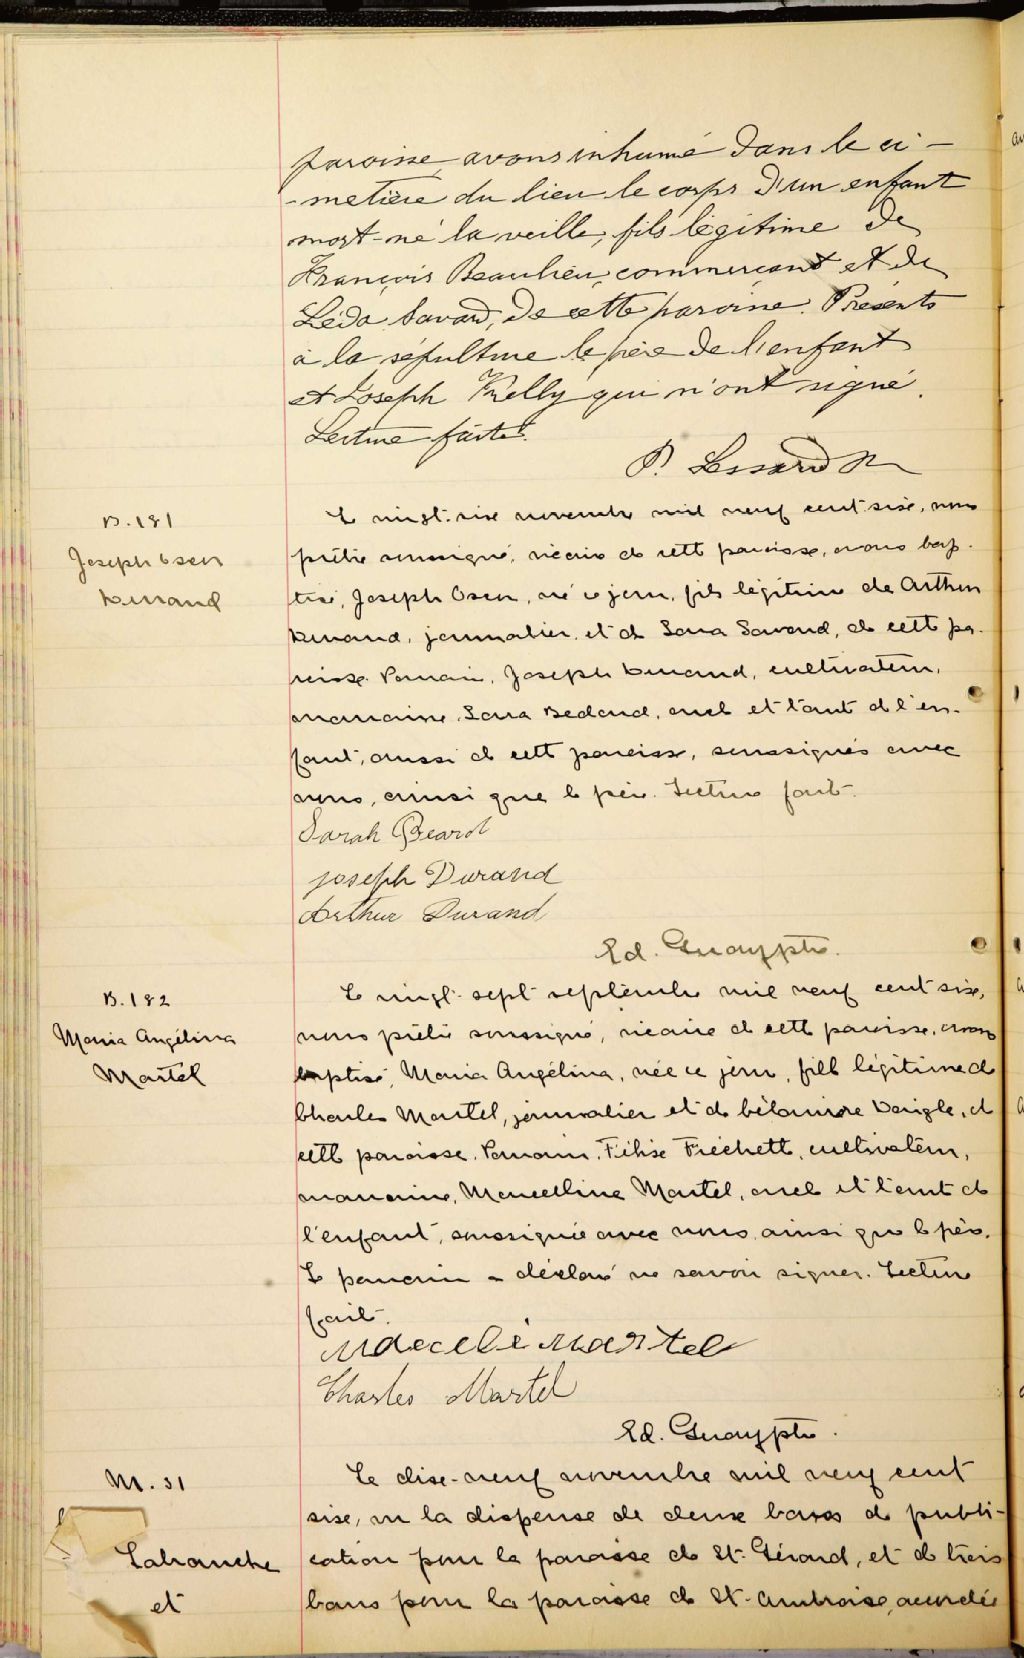 paroisse, avons inhumé dans le ci-
-metière du lieu le corps d'un enfant
mort-né la veille, fils légitime de
François Beaulieu, commerçant et de
Léda Savard, de cette paroisse. Présents
à la sépulture le père de l'enfant
et Joseph Kelly qui n'ont signé.
Lecture faite.
P. Lessard Ptre
B. 181
Joseph Osen
Durand
Le vingt-six novembre mil neuf cent six, nous
prêtre soussigné, vicaire de cette paroisse, avons bap-
tisé, Joseph Osen, né ce jour, fils légitime de Arthur
Durand, journalier, et de Sara Savard, de cette pa-
roisse. Parrain, Joseph Durand, cultivateur,
marraine, Sara Bedard, oncle et tante de l'en-
fant, aussi de cette paroisse, soussignés avec
nous, ainsi que le père. Lecture faite.
Sarah Beard
Joseph Durand
Arthur Durand
Ed. Guay ptre.
B. 182
Maria Angélina
Martel
Le vingt-sept septembre mil neuf cent six,
nous prêtre soussigné, vicaire de cette paroisse, avons
baptisé, Maria Angélina, née ce jour, fille légitime de
Charles Martel, journalier et de Délamire Daigle, de
cette paroisse. Parrain, Félise Fréchette, cultivateur,
marraine, Marcelline Martel, oncle et tante de
l'enfant, soussignée avec nous, ainsi que le père.
Le parrain a déclaré ne savoir signer. Lecture
faite.
Marcele Martel
Charles Martel
Ed. Guay ptre.
M. 31
Labranche
et
Le dix-neuf novembre mil neuf cent
six, vu la dispense de deux bans de publi-
cation pour la paroisse de St. Gérard, et de trois
bans pour la paroisse de St-Ambroise, accordée